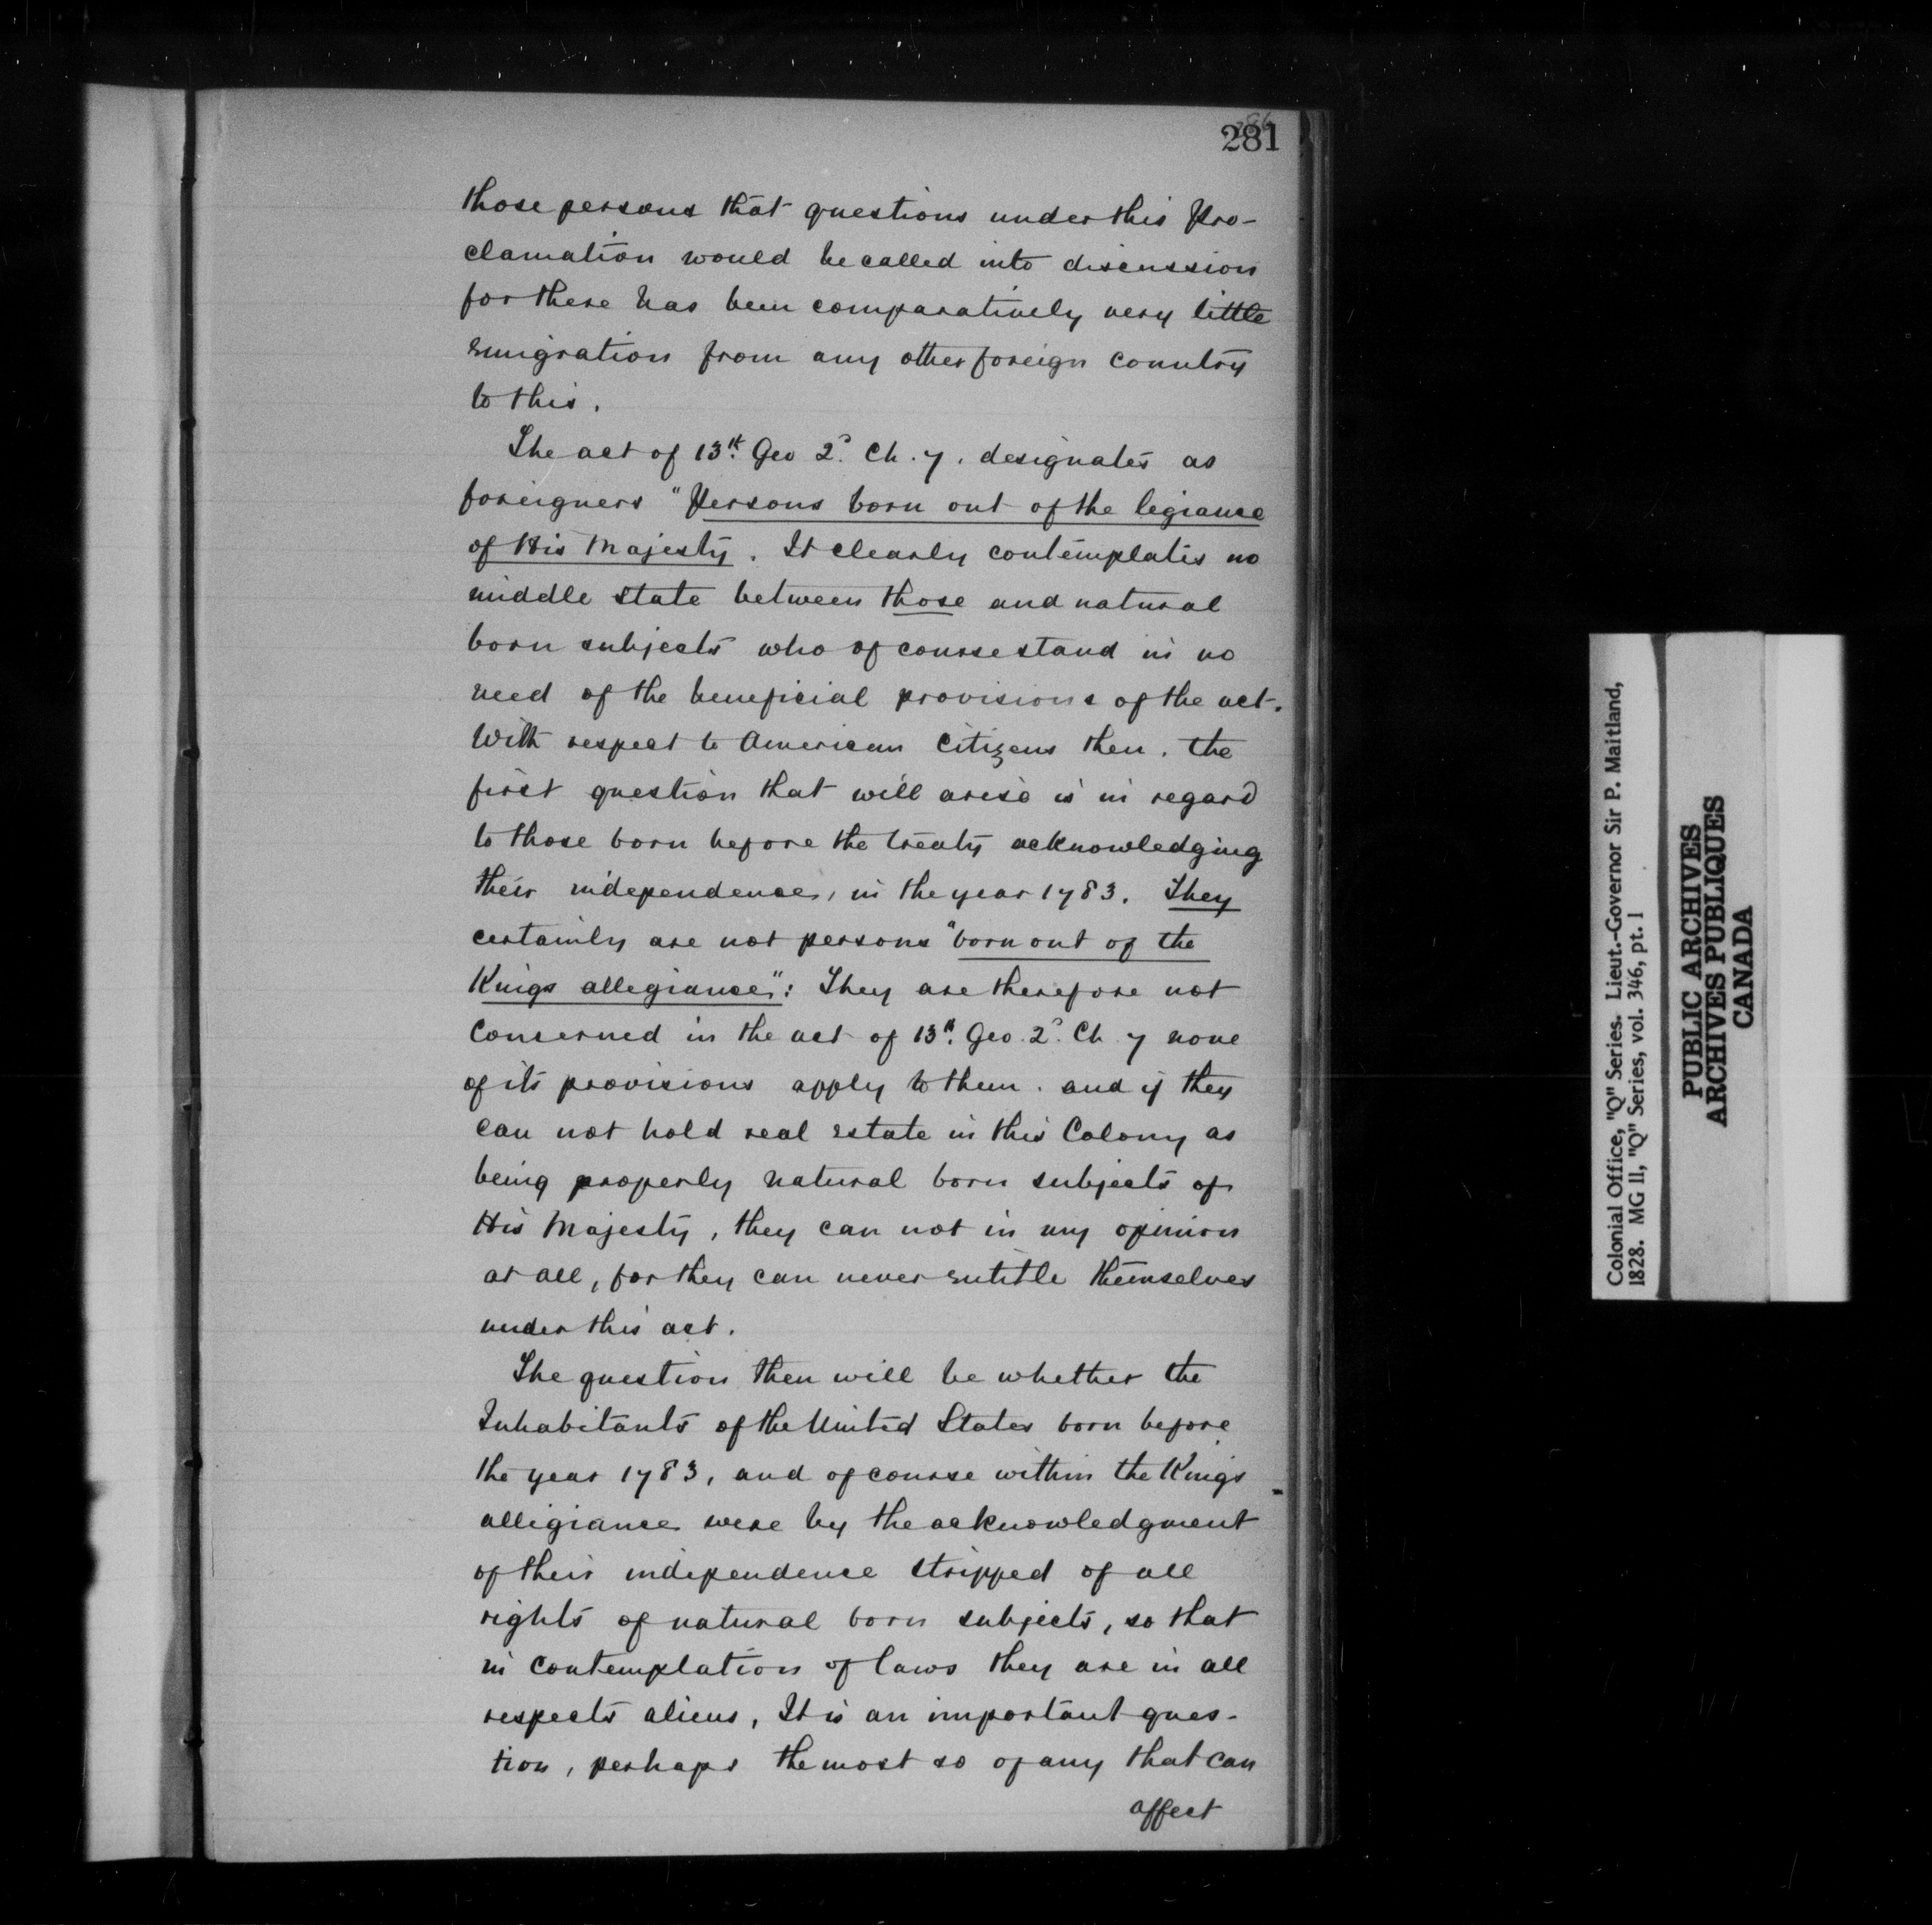 281
those persons that questions under this Pro-
clamation would be called into discussion
for there has been comparatively very little
emigration from any other foreign country
to this.
The act of 13th. Geo 2d. Ch. 7. designates as
foreigners "Persons born out of the legiance
of His Majesty. It clearly contemplates no
middle state between those and natural
born subjects who of course stand in no
need of the beneficial provisions of the act.
With respect to American Citizens then, the
first question that will arise is in regard
to those born before the treaty acknowledging
their independence, in the year 1783. They
certainly are not persons "born out of the
Kings allegiance": They are therefore not
concerned in the act of 13th. Geo. 2d. Ch. 7 none
of its provisions apply to them. and if they
can not hold real estate in this Colony as
being properly natural born subjects of
His Majesty, they can not in my opinion
at all, for they can never entitle themselves
under this act.
The question then will be whether the
Inhabitants of the United States born before
the year 1783, and of course within the Kings
allegiance were by the acknowledgment
of their independence stripped of all
rights of natural born subjects, so that
in contemplation of laws they are in all
respects aliens, It is an important ques-
tion, perhaps the most so of any that can
affect
Colonial Office, "Q" Series. Lieut.-Governor Sir P. Maitland,
1828. MG 11, "Q" Series, vol. 346, pt. 1
PUBLIC ARCHIVES
ARCHIVES PUBLIQUES
CANADA